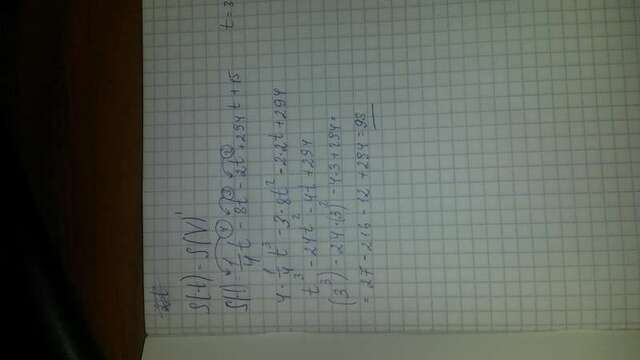 S(t) = S(V)'
S(t) 1/4 t⁴ - 8t³ - 2t² + 294 t + 15 t = 3
4 · 1/4 t³ - 3 · 8t² - 2 · 2t + 294
t³ - 24t² - 4t + 294
(3³) - 24 · (3)² - 4 · 3 + 294 =
= 27 - 216 - 12 + 294 = 93